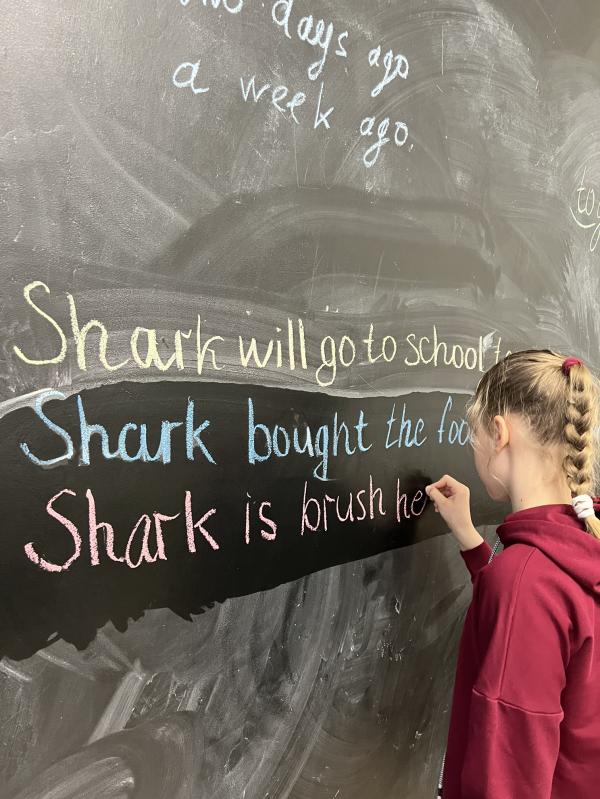 days ago
a week ago.
Shark will go to school
Shark bought the
Shark is brush he